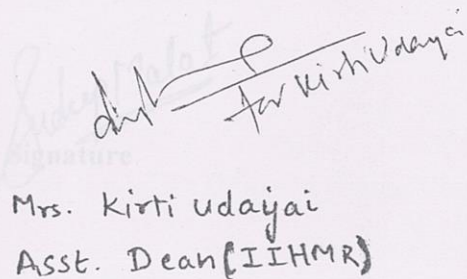 for Kirti Udayai
Signature
Mrs. Kirti udaijai
Asst. Dean (IIHMR)